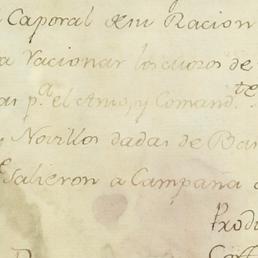 Caporal de su Racion
a Racionar los cueros de
as p.ª el Amo, y Comand.te
Novillos dadas de Ba
salieron a Campaña
Prod